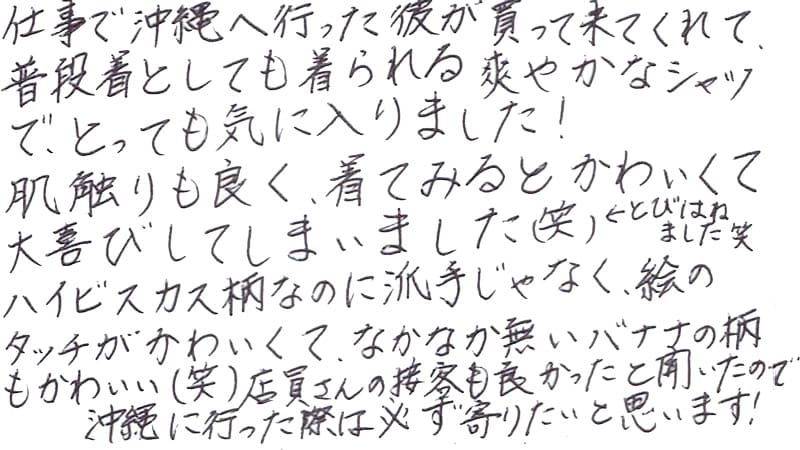 仕事で沖縄へ行った彼が買って来てくれて、
普段着としても着られる爽やかなシャツ
で、とっても気に入りました！
肌触りも良く、着てみるとかわいくて
大喜びしてしまいました(笑)←とびはね
ました笑
ハイビスカス柄なのに派手じゃなく、絵の
タッチがかわいくて、なかなか無いバナナの柄
もかわいい(笑)店員さんの接客も良かったと聞いたので
沖縄に行った際は必ず寄りたいと思います!